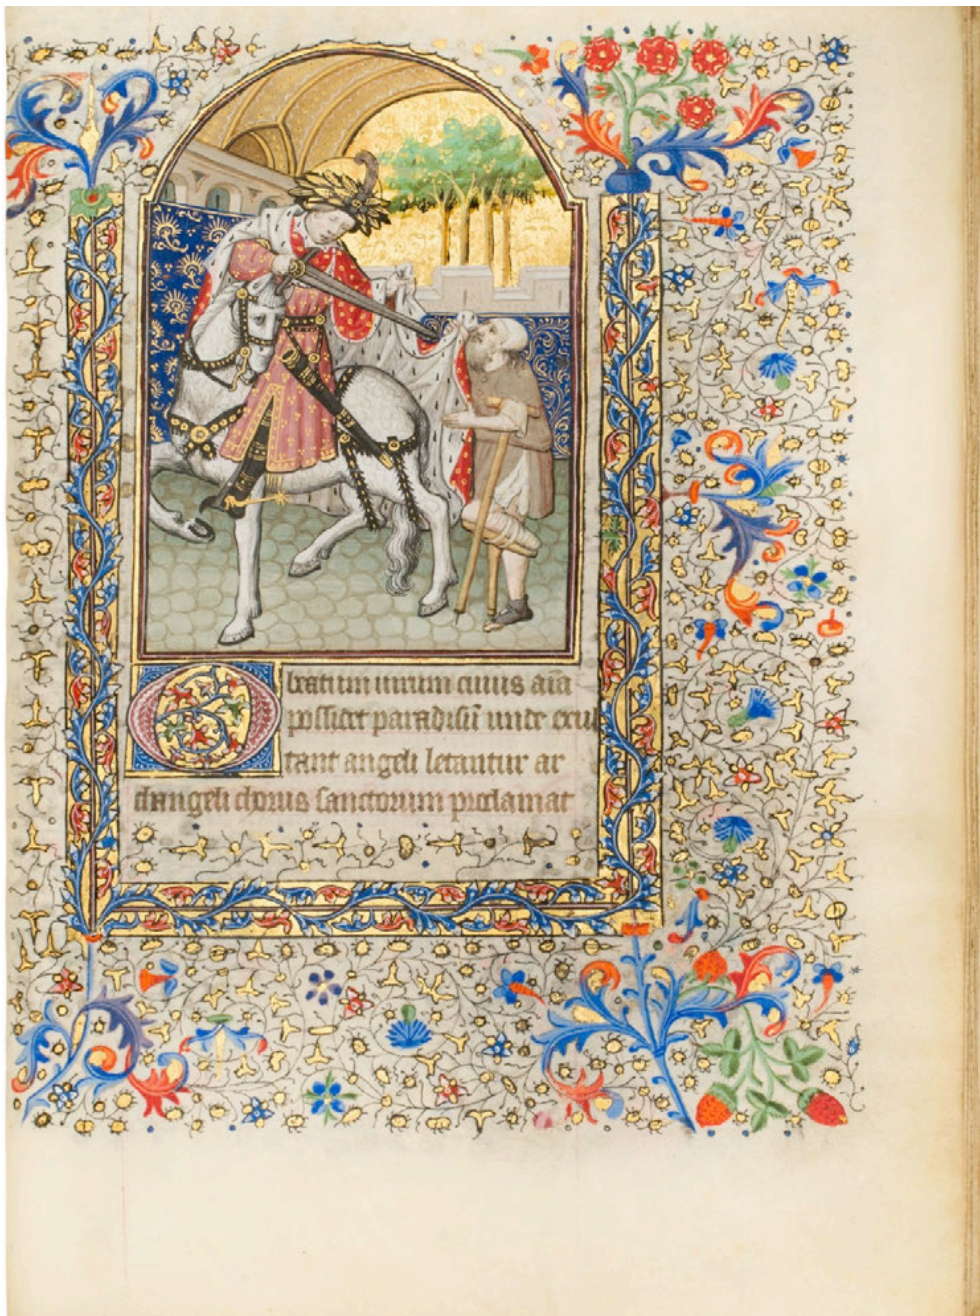 O beatum uirum cuius aīa
possidet paradisū unde exul
tant angeli letantur ar
changeli chorus sanctorum proclamat